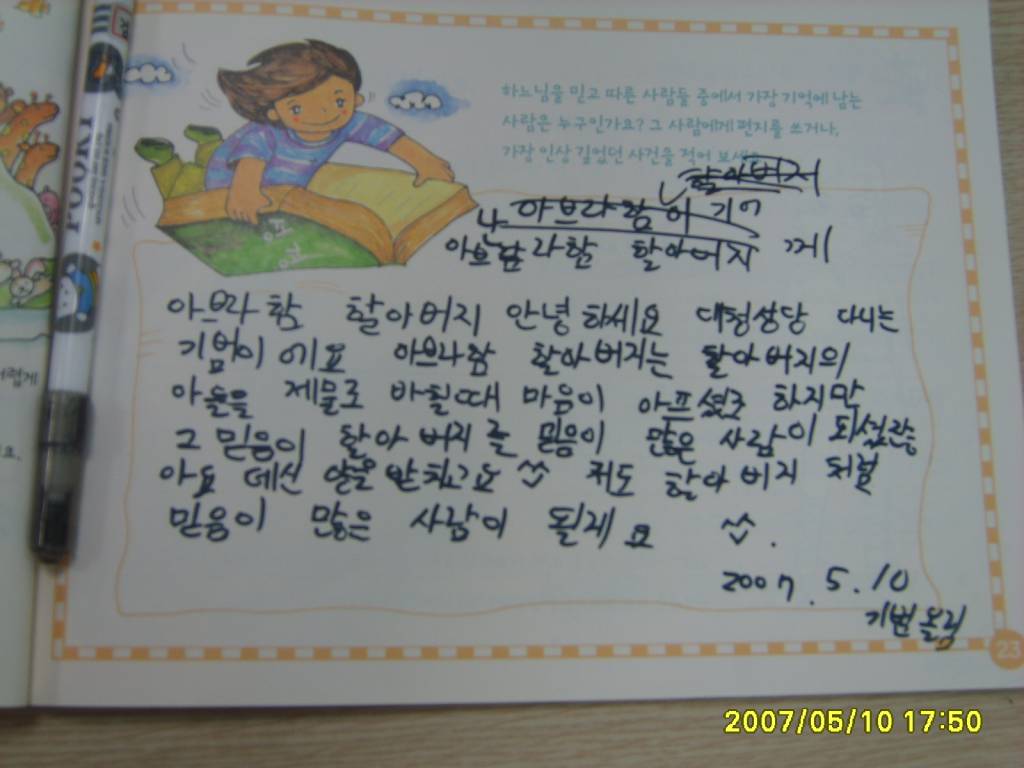 하느님을 믿고 따른 사람들 중에서 가장 기억에 남는
사람은 누구인가요? 그 사람에게 편지를 쓰거나,
가장 인상 깊었던 사건을 적어 보세요.
할아버지
아브라함
아브람라함 할아버지 께
아브라함 할아버지 안녕하세요 대청성당 다니는
기범이에요 아브라함 할아버지는 할아버지의
아들을 제물로 바칠때 마음이 아프셨죠 하지만
그 믿음이 할아버지를 믿음이 많은 사람이
저도 할아버지 처럼
믿음이 많은 사람이 될게요 ^^.
2007. 5. 10
기범올림
23
POOKY
2007/05/10 17:50